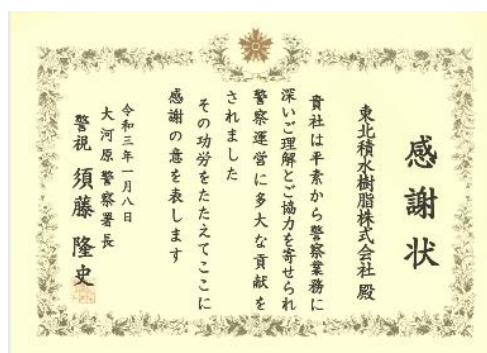 感謝状
東北積水樹脂株式会社 殿
貴社は平素から警察業務に
深いご理解とご協力を寄せられ
警察運営に多大な貢献を
されました
その功労をたたえてここに
感謝の意を表します
令和三年一月八日
大河原警察署長
警視 須藤 隆史